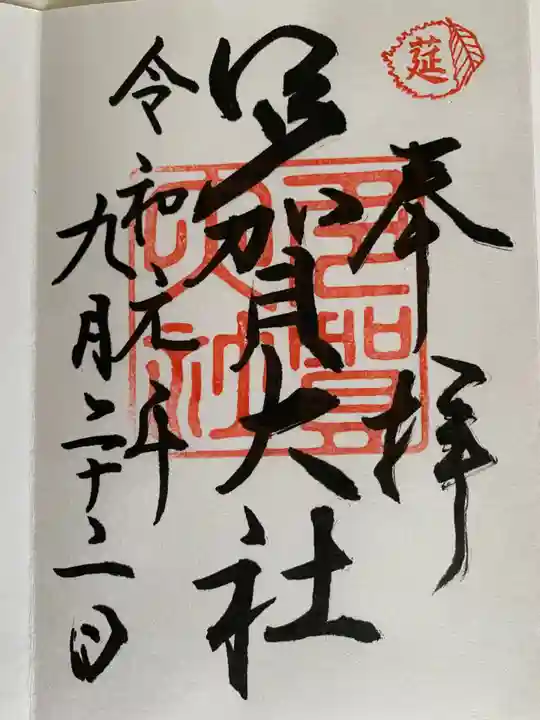 莚
奉拝
多賀大社
令和元年
九月二十二日
多賀大社